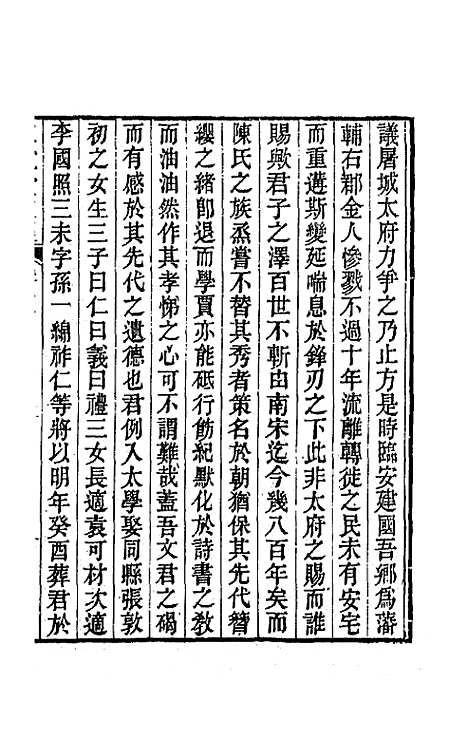 議屠城太府力爭之乃止方是時臨安建國吾鄉為藩
輔右郡金人慘戮不過十年流離轉徙之民未有安宅
而重遘斯變延喘息於鋒刃之下此非太府之賜而誰
賜歟君子之澤百世不斬由南宋迄今幾八百年矣而
陳氏之族烝嘗不替其秀者策名於朝猶保其先代簪
纓之緒卽退而學賈亦能砥行飭紀默化於詩書之敎
而油油然作其孝悌之心可不謂難哉蓋吾文君之碣
而有感於其先代之遺德也君例入太學娶同縣張敦
初之女生三子曰仁曰義曰禮三女長適袁可材次適
李國照三未字孫一綿祚仁等將以明年癸酉葬君於